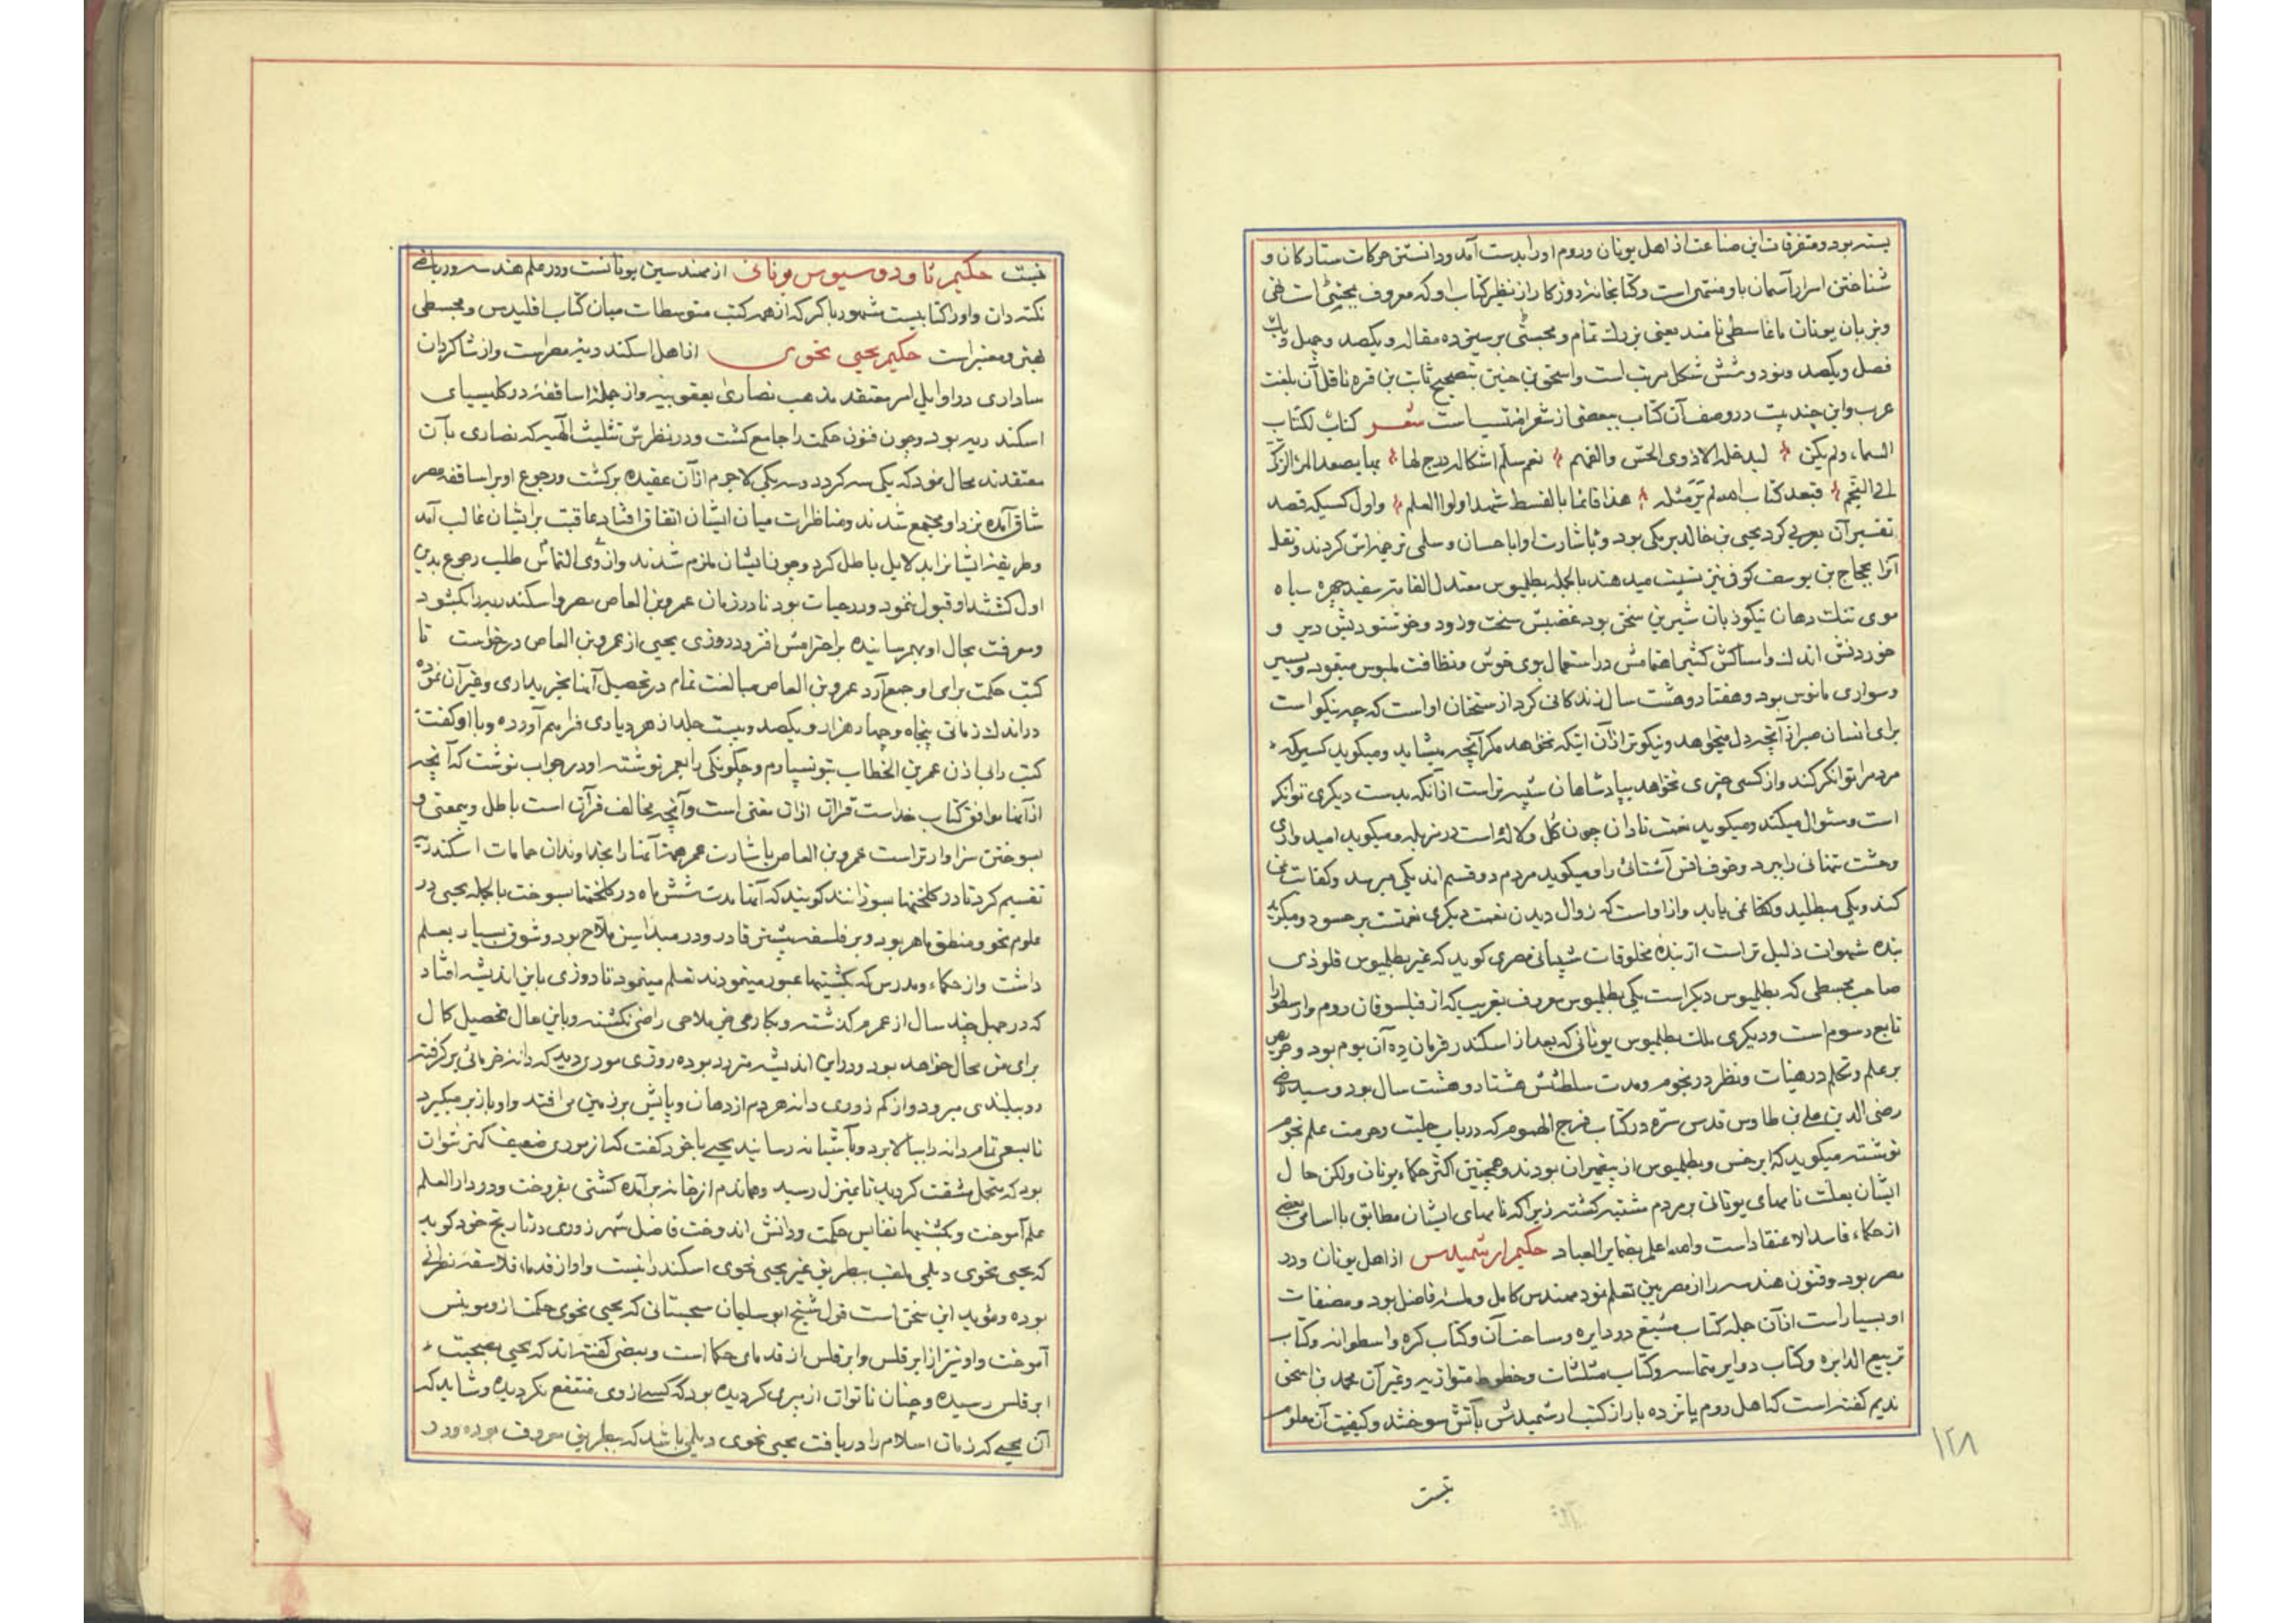 بسته بود و متفرقات این صناعت از اهل یونان و روم او را بدست آمد و دانستن حرکات ستارکان و
شناختن اسرار آسمان باو منتهی است و کتابخانه روزکار از نظیر کتاب او که معروف بمجسطی است تهی
و بزبان یونان ماغاسطی نامند یعنی بزرك تمام و مجسطی بر سیزده مقاله و یکصد و چهل و یك
فصل و یکصد و نود و شش شکل مرتب است و اسحق بن حنین بتصحیح ثابت بن قره ناقل آن بلغت
عرب و این چند بیت در وصف آن کتاب ببعضی از شعرا منتسب است شعر کتاب لکتاب
السماء ولم یکن لیدخله الا ذوی الحس والفهم نعم سلم اشکاله درج لها بها یصعد المرء الزکی
الی النجم فبعد کتاب الله لم یر مثله هذا قائما بالقسط شهد اولوا العلم و اول کسیکه قصد
تفسیر آن بعربی کرد یحیی بن خالد برمکی بود و باشارت او اباحسان و سلمی ترجمه اش کردند و نقل
آنرا بحجاج بن یوسف کوفی نیز نسبت میدهند بالجمله بطلمیوس معتدل القامة سفید چهره سیاه
موی تنك دهان نیکو زبان شیرین سخن بود غضبش سخت و زود و خوشنودیش دیر و
خوردنش اندك و امساکش کثیر اهتمامش در استعمال بوی خوش و نظافت لمبوس میفرمود و بسیر
و سواری مانوس بود و هفتاد و هشت سال زندکانی کرد از سخنان او است که چه نیکو است
برای انسان صبر از آنچه دل میخواهد و نیکوتر از آن اینکه نخواهد مکر آنچه میشاید و میکوید کسیکه
مردم را توانکر کند و از کسی چیزی نخواهد بپادشاهان شبیه تر است از آنکه بدست دیکری توانکر
است و سئوال میکند و میکوید نعمت نادان چون کل و لاله است در مزبله و میکوید امیدواری
وحشت تنهائی را ببرد و خوف انس آشنائی را و میکوید مردم دو قسم اند یکی میرسد و کفایت نمی
کند و یکی میطلبد و نمی یابد و از او است که زوال دیدن نعمت دیکری نعمتست بر حسود و میکوید
بنده شهوات ذلیل تر است از بنده مخلوقات شیبانی مصری کوید که غیر بطلمیوس قلوذی
صاحب مجسطی که بطلمیوس دیکر است یکی بطلمیوس معروف بغریب که از فیلسوفان روم و ارسطو را
تابع رسوم است و دیکری ملك بطلمیوس یونانی که بعد از اسکندر فرمان ده آن بوم بود و حریص
بر علم و تحلم در هیئات و نظر در نجوم و مدت سلطنتش هشتاد و هشت سال بود و سید
رضی الدین علی بن طاوس قدس سره در کتاب فرج الهموم که در باب حلیت و حرمت علم نجوم
نوشته میکوید که ابرخس و بطلمیوس از پیغمبران بودند و همچنین اکثر حکماء یونان ولکن حال
ایشان بعلت نامهای یونانی بر مردم مشتبه کشته زیرا که نامهای ایشان مطابق با اسامی بعضی
از حکماء فاسد الاعتقاد است والله اعلم بضمایر العباد حکیم ارشمیدس از اهل یونان و در
مصر بود و فنون هندسه را از مصریین تعلم نمود مهندس کامل و فاضل بود و مصنفات
او بسیار است از آن جمله کتاب مسبع در دایره و مساحت آن و کتاب کره و اسطوانه و کتاب
تربیع الدایره و کتاب دوایر متماسه و کتاب مثلثات و خطوط متوازیه و غیر آن محمد بن اسحق
ندیم کفته است که اهل روم پانزده بار از کتب ارشمیدس بآتش سوختند و کیفیت آن معلوم
نیست
۱۲۸
نیست حکیم ثاودوسیوس یونانی از مهندسین یونانست و در علم هندسه و ریاضی
نکته دان و او را کتابیست مشهور باکر که از همه کتب متوسطات میان کتاب اقلیدس و مجسطی
بهتر و معتبر است حکیم یحیی نحوی از اهل اسکندریه مصر است و از شاکردان
ساداری در اوایل امر معتقد مذهب نصارای یعقوبیه و از جمله اساقفه در کلیسیای
اسکندریه بود و چون فنون حکمت را جامع کشت و در نظرش تثلیث آلهیه که نصاری بآن
معتقدند محال نمود که یکی سه کردد و سه یکی لاجرم از آن عقیده برکشت و رجوع او بر اساقفه مصر
شاق آمده نزد او مجتمع شدند و مناظرات میان ایشان اتفاق افتاد عاقبت بر ایشان غالب آمد
و طریقه ایشانرا بدلایل باطل کرد و چون ایشان ملزم شدند و از وی التماس طلب رجوع بدین
اول کشتند او قبول ننمود و در حیات بود تا در زمان عمرو بن العاص مصر و اسکندریه را بکشود
و معرفت بحال او بهم رسانیده بر احترامش افزود روزی یحیی از عمرو بن العاص درخواست تا
کتب حکمت برای او جمع آرد عمرو بن العاص مبالغت تمام در تحصیل آنها بخریداری و غیر آن نموده
در اندك زمانی پنجاه و چهار هزار و یکصد و بیست جلد از هر دیاری فراهم آورده و با او کفت
کتب را بی اذن عمر بن الخطاب بتو نسپارم و چکونکی را بعمر نوشته او در جواب نوشت که آنچه
از آنها موافق کتاب خداست قرآن از آن مغنی است و آنچه مخالف قرآن است باطل و بیمعنی و
بسوختن سزاوارتر است عمرو بن العاص باشارت عمر همه آنها را بخداوندان حمامات اسکندریه
تقسیم کرد تا در کلخنها بسوزانند کویند که آنها مدت شش ماه در کلخنها بسوخت بالجمله یحیی در
علوم نحو و منطق ماهر بود و بر فلسفه بیشتر قادر و در مبدا سن ملاح بود و شوق بسیار بعلم
داشت و از حکماء و مدرس که بکشتیها عبور مینمودند تعلم مینمود تا روزی باین اندیشه افتاد
که در چهل چند سال از عمرم کذشته و بکاری راضی نکشته و باین حال تحصیل کمال
برای من محال خواهد بود و در این اندیشه متردد بوده روزی موری دید که دانه خرمائی برکرفته
رو ببلندی میرود و از کم زوری دانه هر دم از دهان و پایش بر زمین می افتد و او باز بر میکیرد
تا بسعی تمام دانه را ببالا برد و بآشیانه رسانید یحیی با خود کفت که از موری ضعیف کمتر نتوان
بود که بتحمل مشقت کردید تا بمنزل رسید و هماندم از خانه برآمده کشتی بفروخت و در دار العلم
علم آموخت و بکشتیها نفایس حکمت و دانش اندوخت فاضل شهرزوری در تاریخ خود کوید
که یحیی نحوی دیلمی ملقب ببطریق غیر یحیی نحوی اسکندرانیست و او از قدماء فلاسفه نصرانی
بوده و مؤید این سخن است قول شیخ ابو سلیمان سجستانی که یحیی نحوی حکمت از
آموخت و او نیز از ابرقلس و ابرقلس از قدمای حکما است و بعضی کفته اند که یحیی بصحبت
ابرقلس رسیده و چنان ناتوان از پیری کردیده بود که کسی از وی منتفع نکردیده و شاید که
آن یحیی که زمان اسلام را دریافت یحیی نحوی دیلمی باشد که ببطریق معروف بوده و در